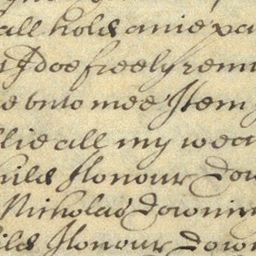 all hold anie pa
I doe freely remi
e vnto mee Item
lie all my wea
hild Honour Dow
Nicholas Downing
ild Honour Down